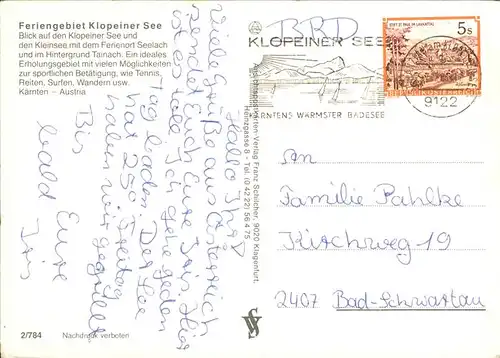 Feriengebiet Klopeiner See
Blick auf den Klopeiner See und
den Kleinsee mit dem Ferienort Seelach
und im Hintergrund Tainach. Ein ideales
Erholungsgebiet mit vielen Möglichkeiten
zur sportlichen Betätigung, wie Tennis,
Reiten, Surfen, Wandern usw.
Kärnten – Austria
Hallo Ihr!
Viele Grüße aus Österreich
sendet Euch Eure Iris. Hier
ist es toll. Ich gehe jeden
Tag baden. Der See
hat 25°.
haben wir gegrillt
Bis
bald Eure
Iris
2/784
Nachdruck verboten
Ansichtskarten-Verlag Franz Schilcher, 9020 Klagenfurt,
Hanzgasse 8 - Tel. (0 42 22) 56 4 75
BRD
KLOPEINER SEE
KÄRNTENS WÄRMSTER BADESEE
STIFT ST. PAUL IM LAVANTTAL
5s
REPUBLIK ÖSTERREICH
9122
An
Familie Pahlke
Kirchweg 19
2407 Bad-Schwartau